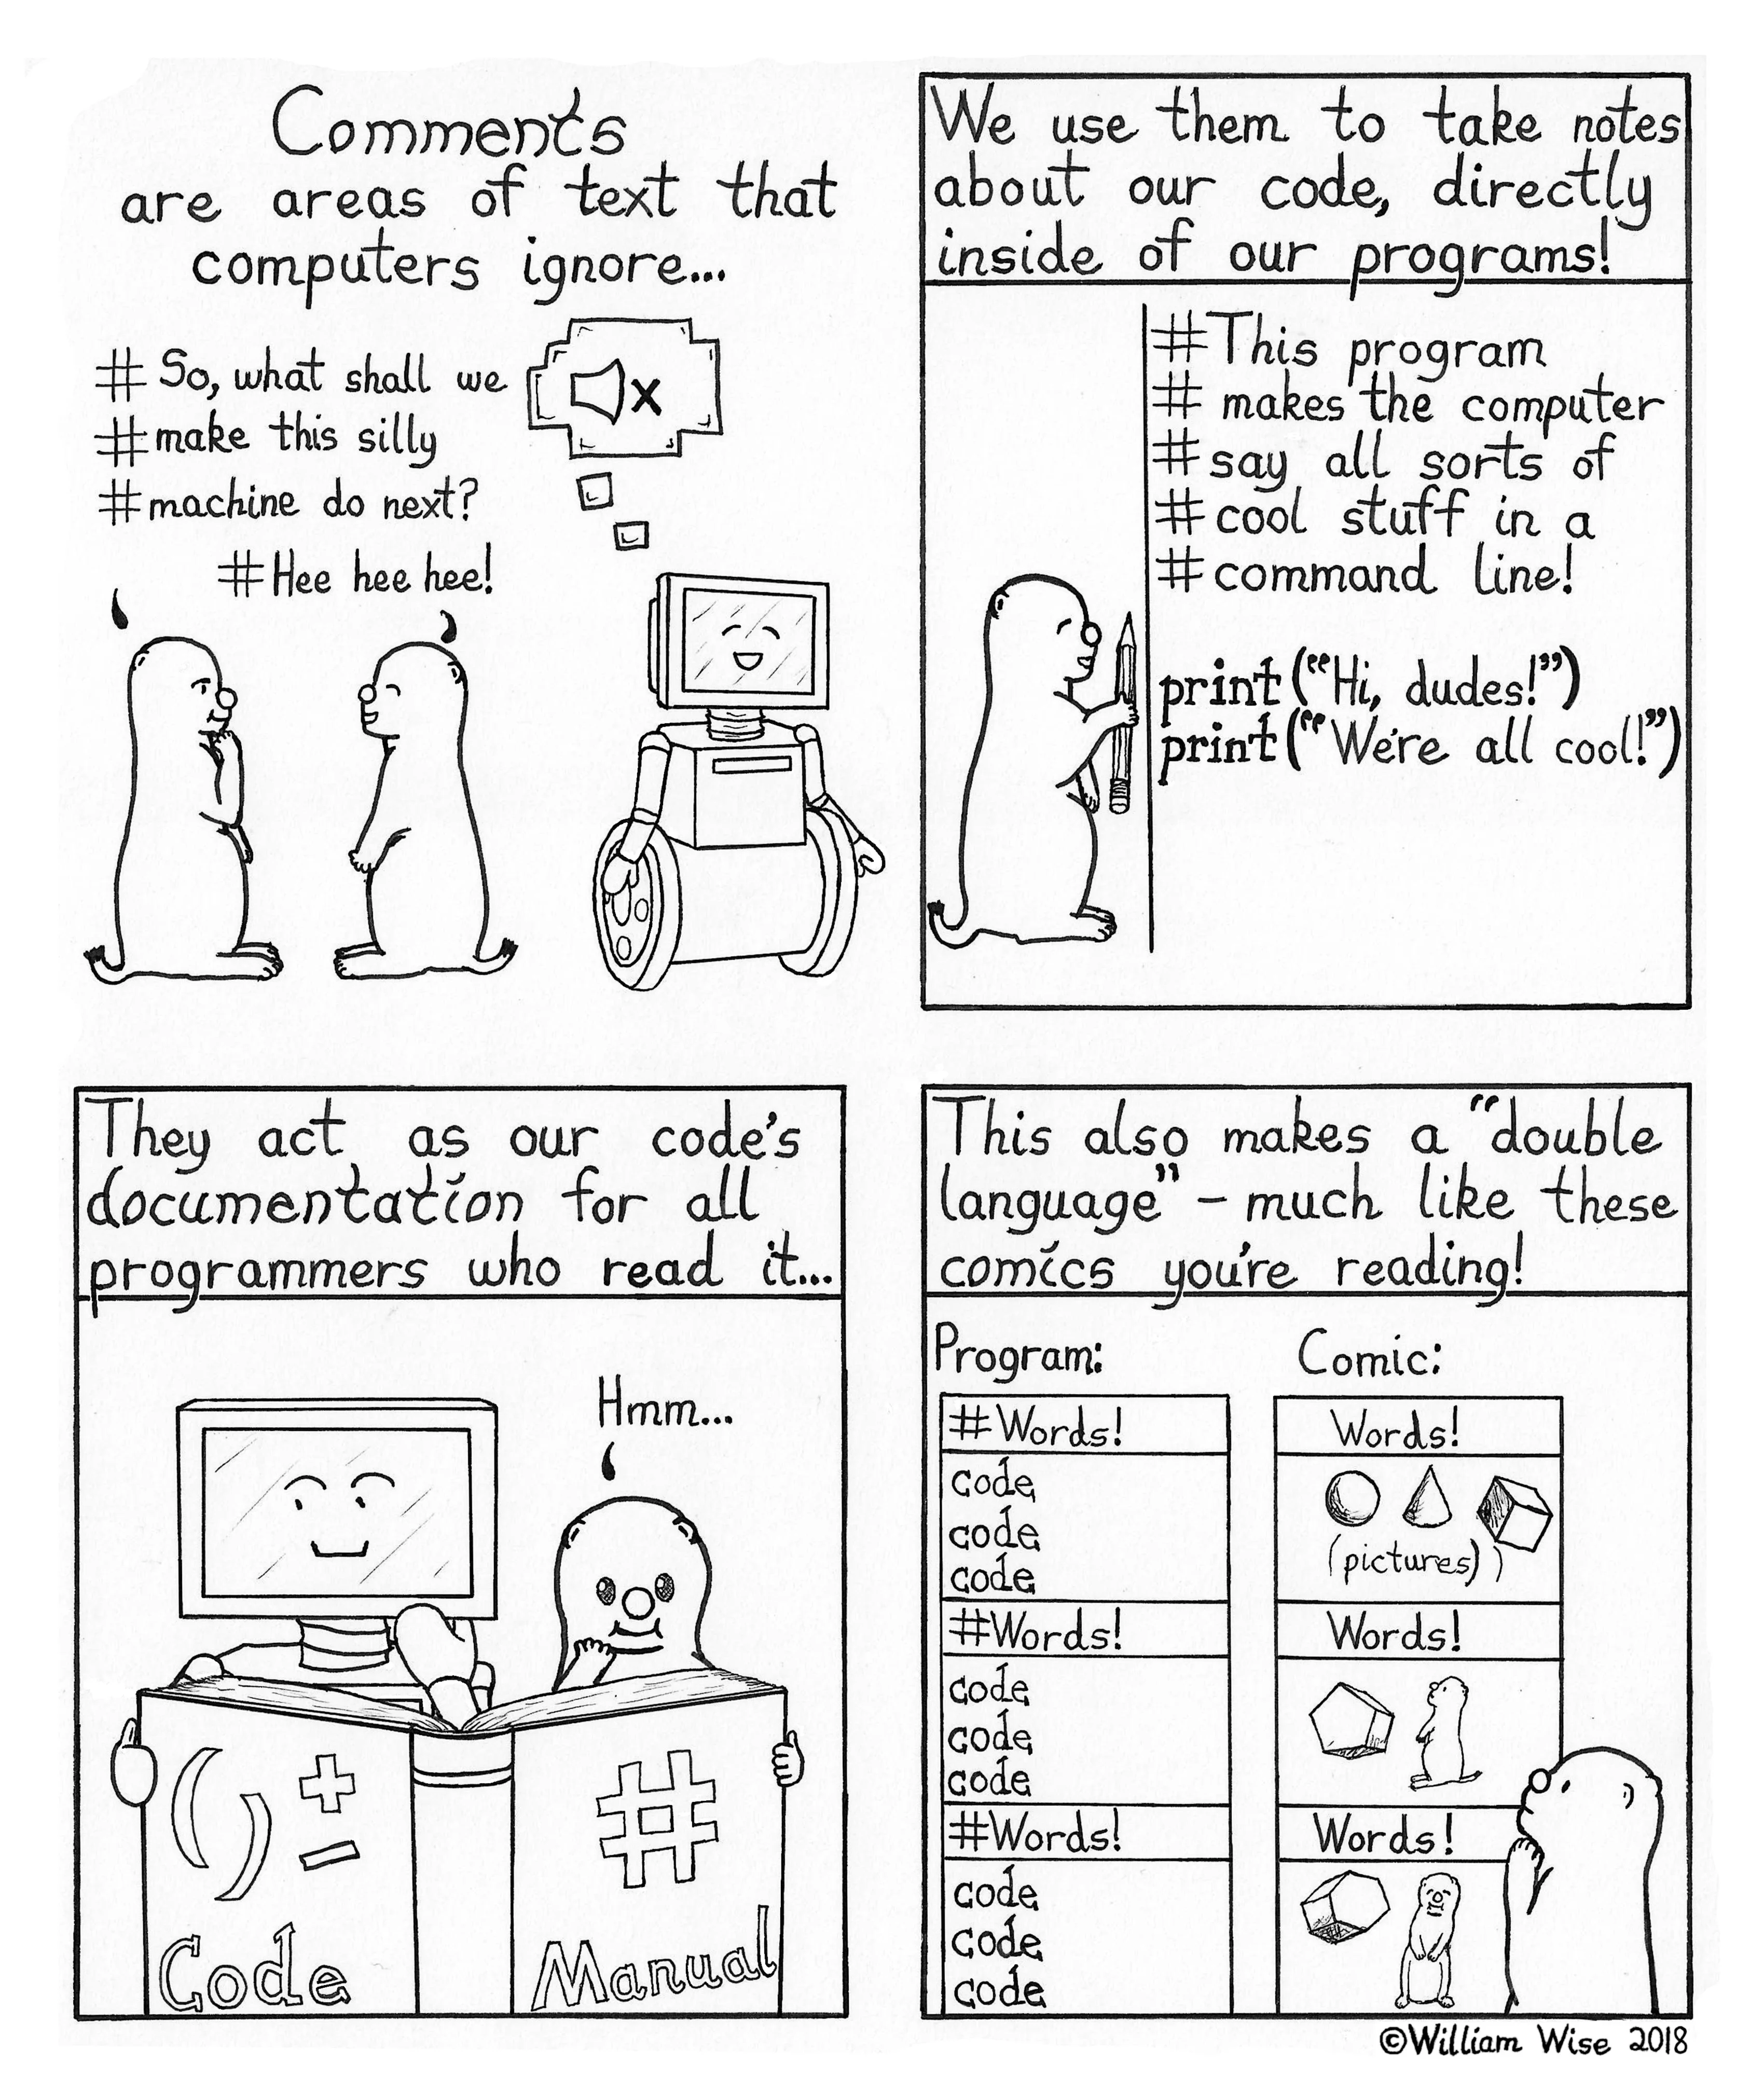 Comments
are areas of text that
computers ignore...
# So, what shall we
# make this silly
# machine do next?
# Hee hee hee!
We use them to take notes
about our code, directly
inside of our programs!
# This program
# makes the computer
# say all sorts of
# cool stuff in a
# command line!
print("Hi, dudes!")
print("We're all cool!")
They act as our code's
documentation for all
programmers who read it...
Hmm...
( ) + -
#
Code
Manual
This also makes a "double
language" - much like these
comics you're reading!
Program:
#Words!
code
code
code
#Words!
code
code
code
#Words!
code
code
code
Comic:
Words!
(pictures)
Words!
Words!
©William Wise 2018